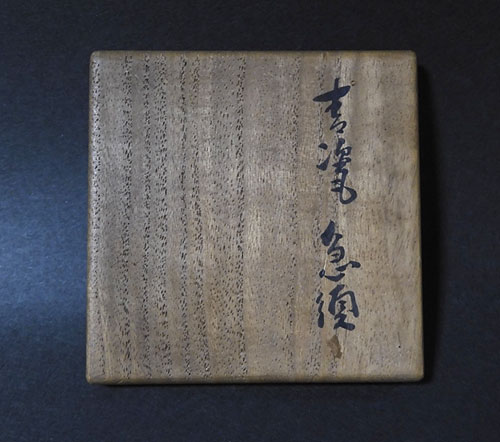 青瓷急須